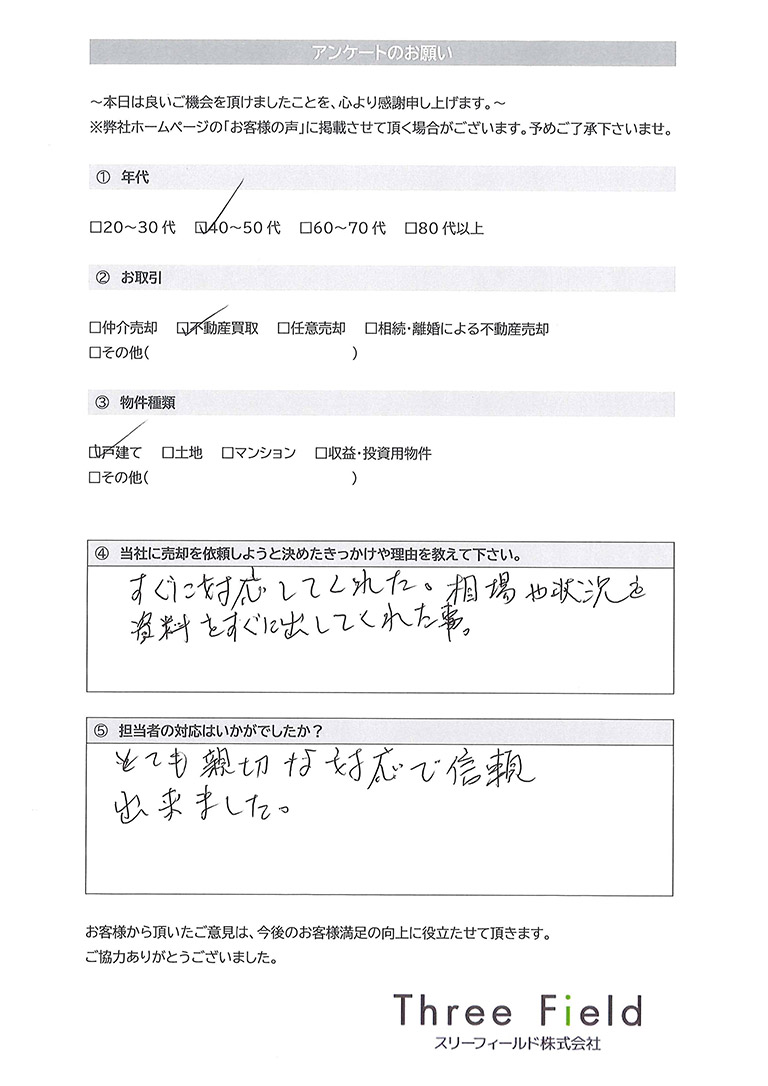 アンケートのお願い
～本日は良いご機会を頂けましたことを、心より感謝申し上げます。～
※弊社ホームページの「お客様の声」に掲載させて頂く場合がございます。予めご了承下さいませ。
① 年代
□20～30代 ☑40～50代 □60～70代 □80代以上
② お取引
□仲介売却 ☑不動産買取 □任意売却 □相続・離婚による不動産売却
□その他( )
③ 物件種類
☑戸建て □土地 □マンション □収益・投資用物件
□その他( )
④ 当社に売却を依頼しようと決めたきっかけや理由を教えて下さい。
すぐに対応してくれた。相場や状況を
資料をすぐに出してくれた事。
⑤ 担当者の対応はいかがでしたか？
とても親切な対応で信頼
出来ました。
お客様から頂いたご意見は、今後のお客様満足の向上に役立たせて頂きます。
ご協力ありがとうございました。
Three Field
スリーフィールド株式会社